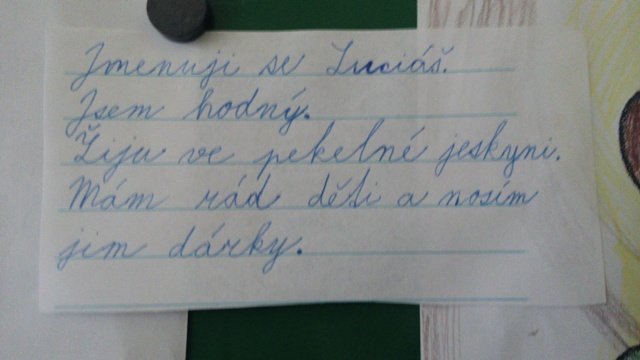 Jmenuji se Luciáš.
Jsem hodný.
Žiju ve pekelné jeskyni.
Mám rád děti a nosím
jim dárky.